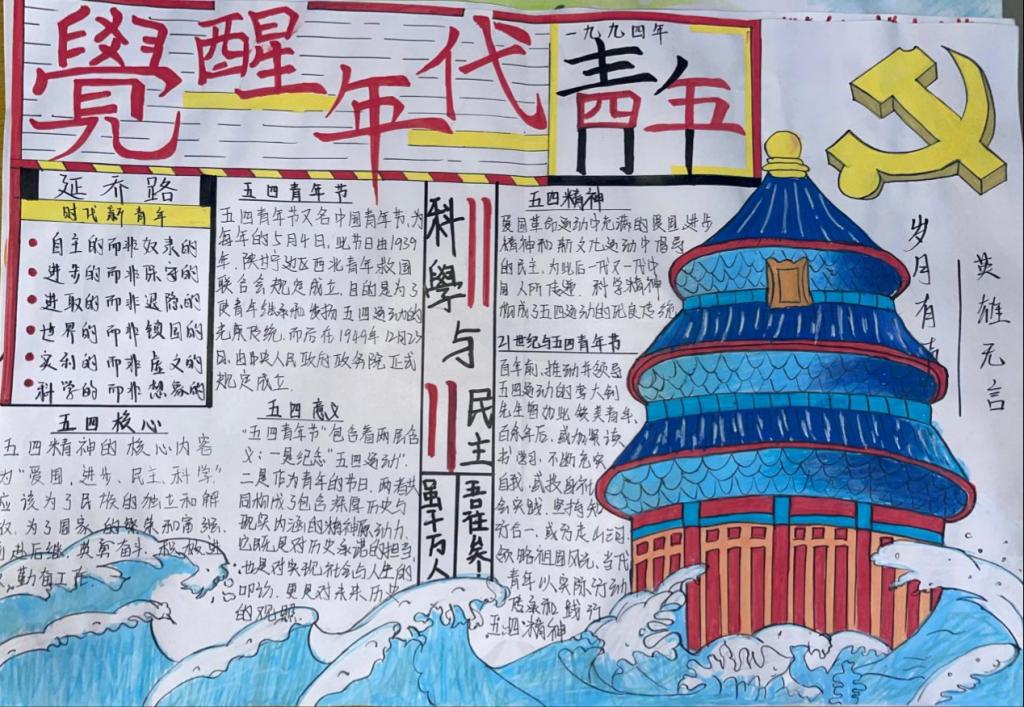 覺醒年代
一九九四年
青年
五四
延乔路
时代新青年
自主的而非奴隶的
进步的而非保守的
进取的而非退隐的
世界的而非锁国的
实利的而非虚文的
科学的而非想象的
五四核心
五四精神的核心内容
为“爱国、进步、民主、科学”
应该为了民族的独立和解
放、为了国家的繁荣和富强
英勇奋斗、积极进
勤奋工作
五四青年节
五四青年节又名中国青年节,为
每年的5月4日,此节日由1939
年,陕甘宁边区西北青年救国
联合会规定成立,目的是为了
使青年继承和发扬五四运动的
光荣传统,而后在1949年12月23
日,由中央人民政府政务院正式
规定成立.
五四意义
“五四青年节”包含着两层含
义:一是纪念“五四运动”.
二是作为青年的节日,两者共
同构成了包含深厚历史与
现实内涵的精神原动力,
它既是对历史承诺的担当,
也是对实现社会与人生的
叩访,更是对未来历史
的观照.
科學与民主
虽千万人
吾往矣
五四精神
爱国革命运动中充满的爱国、进步
精神和新文化运动中倡导
的民主,为此后一代又一代中
国人所传递.科学精神
构成了五四运动的优良传统
21世纪与五四青年节
百年前,推动并领导
五四运动的李大钊
先生曾如此
百余年后,
书学习,不断充实
自我,
会实践,坚持知
行合一,
领略祖国风光,当代
青年以实际行动
传承和践行
五四精神
岁月有
英雄无言